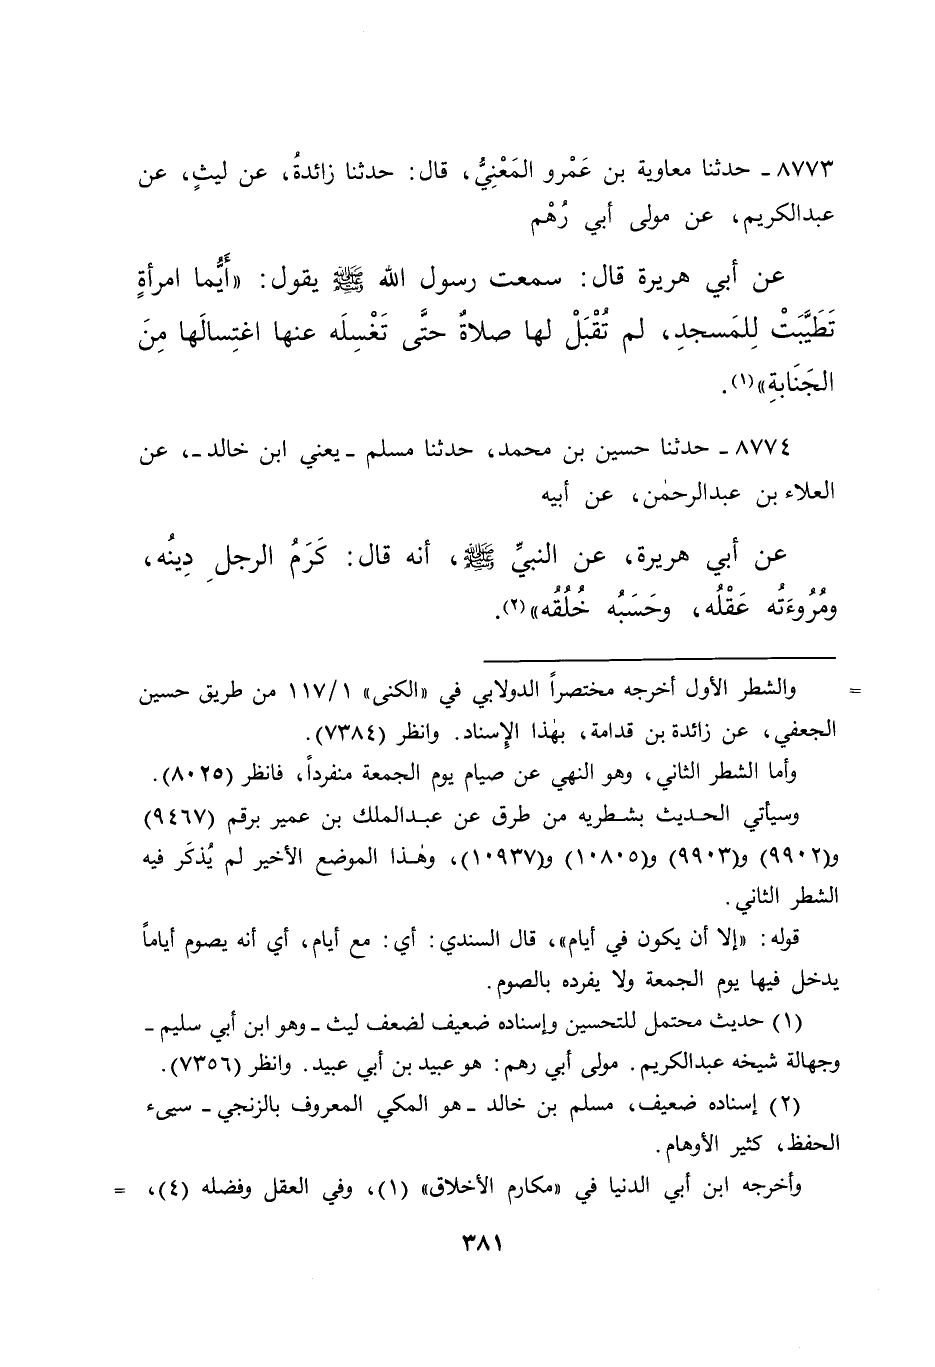 ٨٧٧٣ ـ حدثنا معاوية بن عَمْرو المَعْنِيُّ، قال: حدثنا زائدةُ، عن ليثٍ، عن
عبدالكريم، عن مولى أبي رُهْم
عن أبي هريرة قال: سمعت رسول الله ﷺ يقول: «أَيُّما امرأةٍ
تَطَيَّبَتْ لِلمَسجدِ، لم تُقْبَلْ لها صلاةٌ حتَّى تَغْسِلَه عنها اغتِسالَها مِنَ
الجَنَابةِ»(١).
٨٧٧٤ ـ حدثنا حسين بن محمد، حدثنا مسلم ـ يعني ابن خالد ـ، عن
العلاء بن عبدالرحمٰن، عن أبيه
عن أبي هريرة، عن النبيِّ ﷺ، أنه قال: كَرَمُ الرجلِ دِينُه،
ومُرُوءَتُه عَقْلُه، وحَسَبُه خُلُقُه»(٢).
= والشطر الأول أخرجه مختصراً الدولابي في «الكنى» ١١٧/١ من طريق حسين
الجعفي، عن زائدة بن قدامة، بهٰذا الإسناد. وانظر (٧٣٨٤).
وأما الشطر الثاني، وهو النهي عن صيام يوم الجمعة منفرداً، فانظر (٨٠٢٥).
وسيأتي الحديث بشطريه من طرق عن عبدالملك بن عمير برقم (٩٤٦٧)
و(٩٩٠٢) و(٩٩٠٣) و(١٠٨٠٥) و(١٠٩٣٧)، وهٰذا الموضع الأخير لم يُذكَر فيه
الشطر الثاني.
قوله: «إلا أن يكون في أيام»، قال السندي: أي: مع أيام، أي أنه يصوم أياماً
يدخل فيها يوم الجمعة ولا يفرده بالصوم.
(١) حديث محتمل للتحسين وإسناده ضعيف لضعف ليث ـ وهو ابن أبي سليم ـ
وجهالة شيخه عبدالكريم. مولى أبي رهم: هو عبيد بن أبي عبيد. وانظر (٧٣٥٦).
(٢) إسناده ضعيف، مسلم بن خالد ـ هو المكي المعروف بالزنجي ـ سيىء
الحفظ، كثير الأوهام.
وأخرجه ابن أبي الدنيا في «مكارم الأخلاق» (١)، وفي العقل وفضله (٤)، =
٣٨١